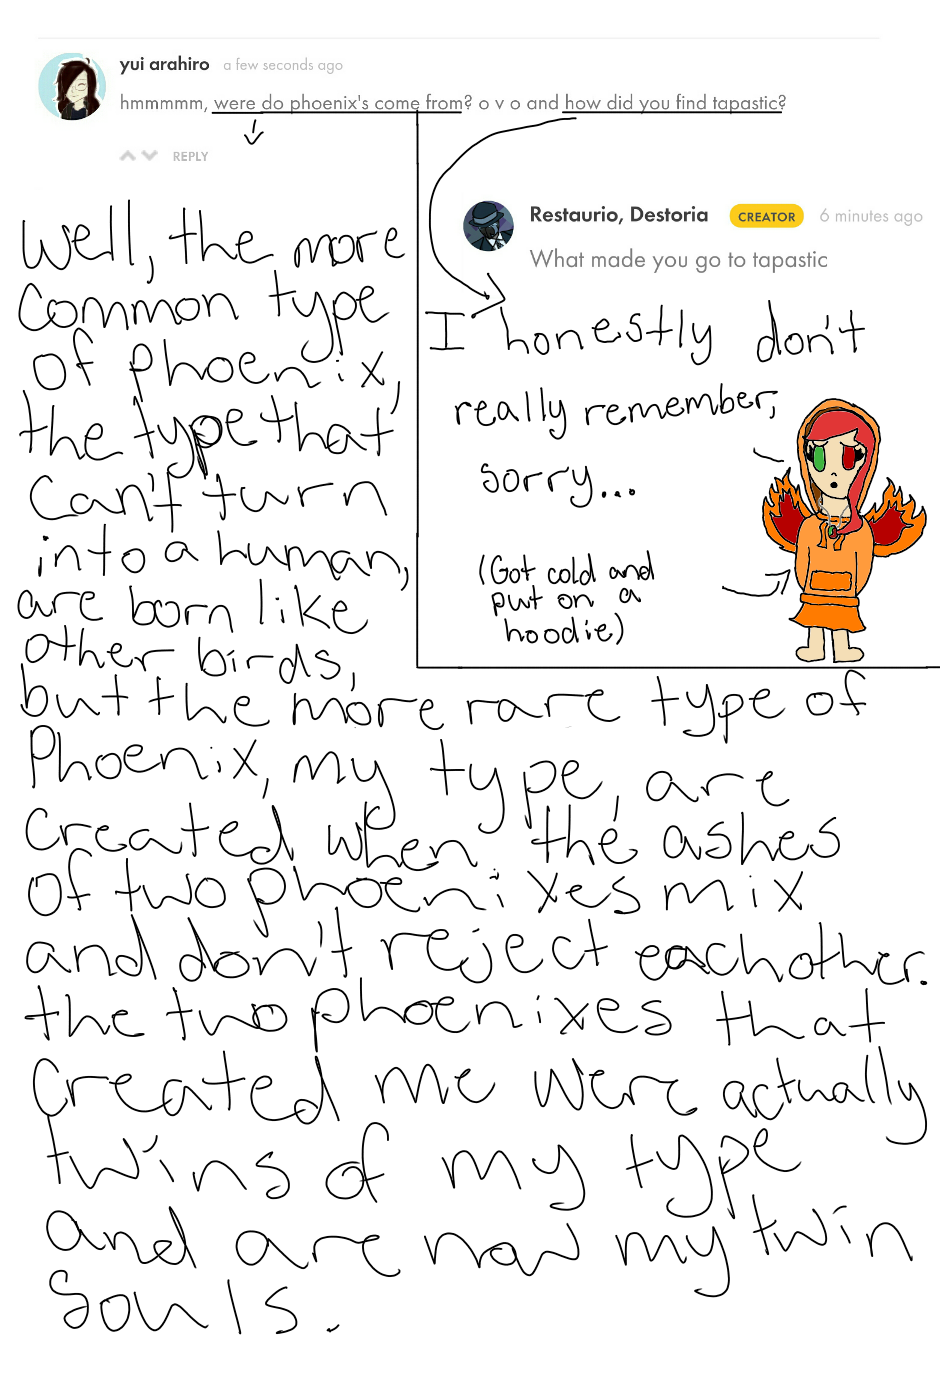 yui arahiro a few seconds ago
hmmmmm, were do phoenix's come from? o v o and how did you find tapastic?
REPLY
Well, the more
common type
of phoenix,
the type that
can't turn
into a human,
are born like
other birds,
but the more rare type of
Phoenix, my type, are
created when the ashes
of two phoenixes mix
and don't reject eachother.
the two phoenixes that
created me were actually
twins of my type
and are now my twin
souls.
Restaurio, Destoria CREATOR 6 minutes ago
What made you go to tapastic
I honestly don't
really remember,
sorry...
(Got cold and
put on a
hoodie)